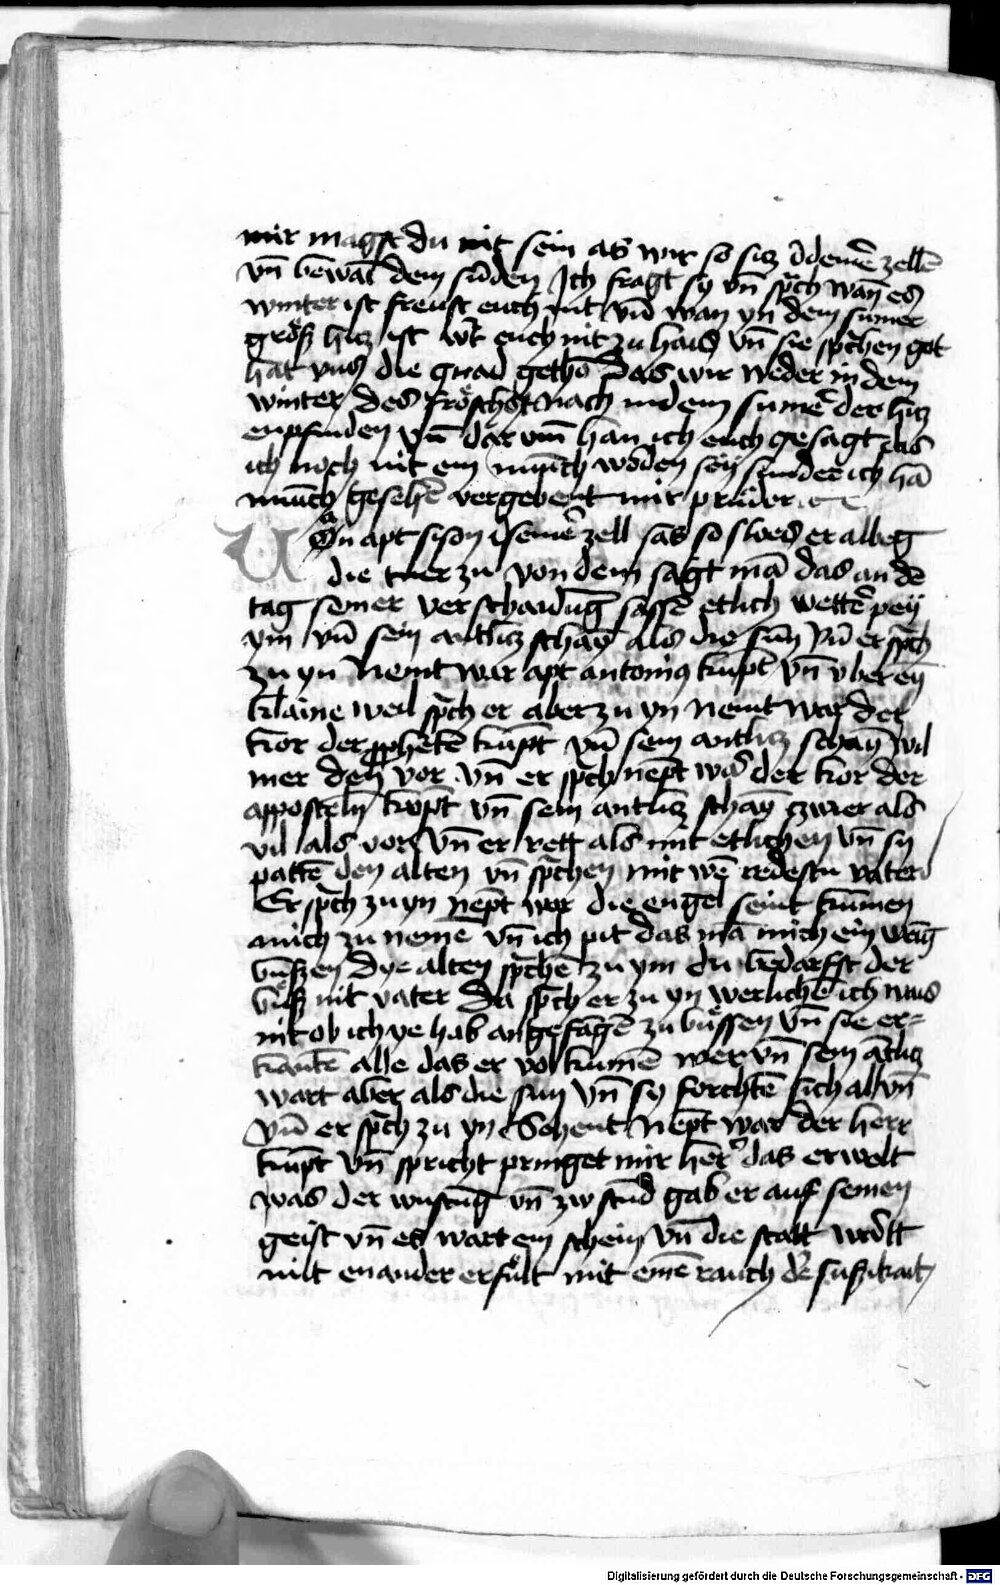 mir magst du nit sein als wir so sicz ī deinē zellē
vn̄ bewaī dein sūden Ich fragt sy vn̄ sp̄ch wan̄ es
winter ist freust euch nit vn̄ wan yn dem sumer
größ hicz ist wt euch nit zu hais vn̄ sie sp̄chen got
hat vns die gnad gethō das wir weder in dem
winter des fröschst nach in dem sumē der hicz
enpfinden vn̄ dar vm̄ han ich euch gesagt das
ich noch nit ein münch woden sey sunder ich hā
münch gesehē vergebent mir prüder
Von apt sison ī seinē zell sas so sloes er albeg
die tuer zu von dem sagt mā das an dē
tag seiner verschaidūg sassē etlich vettē pey
ym vn̄ sein antlicz schay als die sun̄ vn̄ er sp̄ch
zu yn Nemt war apt antonius kūpt vn̄ vber ey
klaine weil sp̄ch er aber zu yn nemt war der
kor der pphetē kūpt vn̄ sein antlicz schay vil
mer den vor vn̄ er sp̄ch nept war der kor der
apposteln kupt vn̄ sein antlicz schay zwier als
vil als vor vn̄ er rett als mit etlichen vn̄ sy
pattē den alten vn̄ sp̄chen mit wē redestu vater
Er sp̄ch zu yn nept war die engel seint kumen
mich zu nemē vn̄ ich pit das mā mich ein weīg
büssen dye alten sp̄chē zu ym du bedarfst der
büß nit vater Da sp̄ch er zu yn werlichē ich wais
nit ob ich ye hab angefāgē zu büssen vn̄ sie er=
kantē alle das er volkumē wer vn̄ sein ātlicz
wart aber als die sun vn̄ sy forchtē sich all vn̄
vn̄ er sp̄ch zu yn Sehent nept war der herr
kūpt vn̄ spricht pringet mir her das erwelt
vas der wustūg vn̄ zw stūd gab er auf seinen
geist vn̄ es wart ein schein vn̄ die statt wart
mit enander erfült mit einē rauch der sussikait
Digitalisierung gefördert durch die Deutsche Forschungsgemeinschaft - DFG